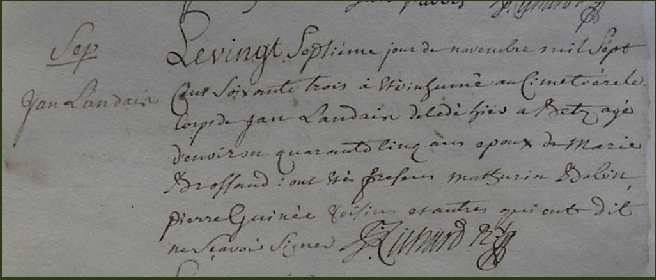 Sep
Jan Landais
Le vingt Septième jour de novembre mil Sept
Cent Soixante trois a été inhumé au Cimetière le
Corps de Jan Landais décédé hier a Betz agé
d'environ quarante cinq ans epoux de Marie
Brossard : ont été presens Mathurin
pierre Guinée Voisins et autres qui ont dit
ne sçavoir Signer